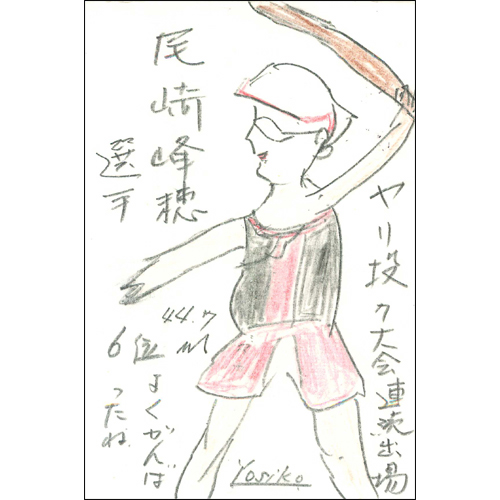 尾崎峰穂
選手
ヤリ投
7大会連続出場
44.7m
6位よくがんば
ったね
Yosiko